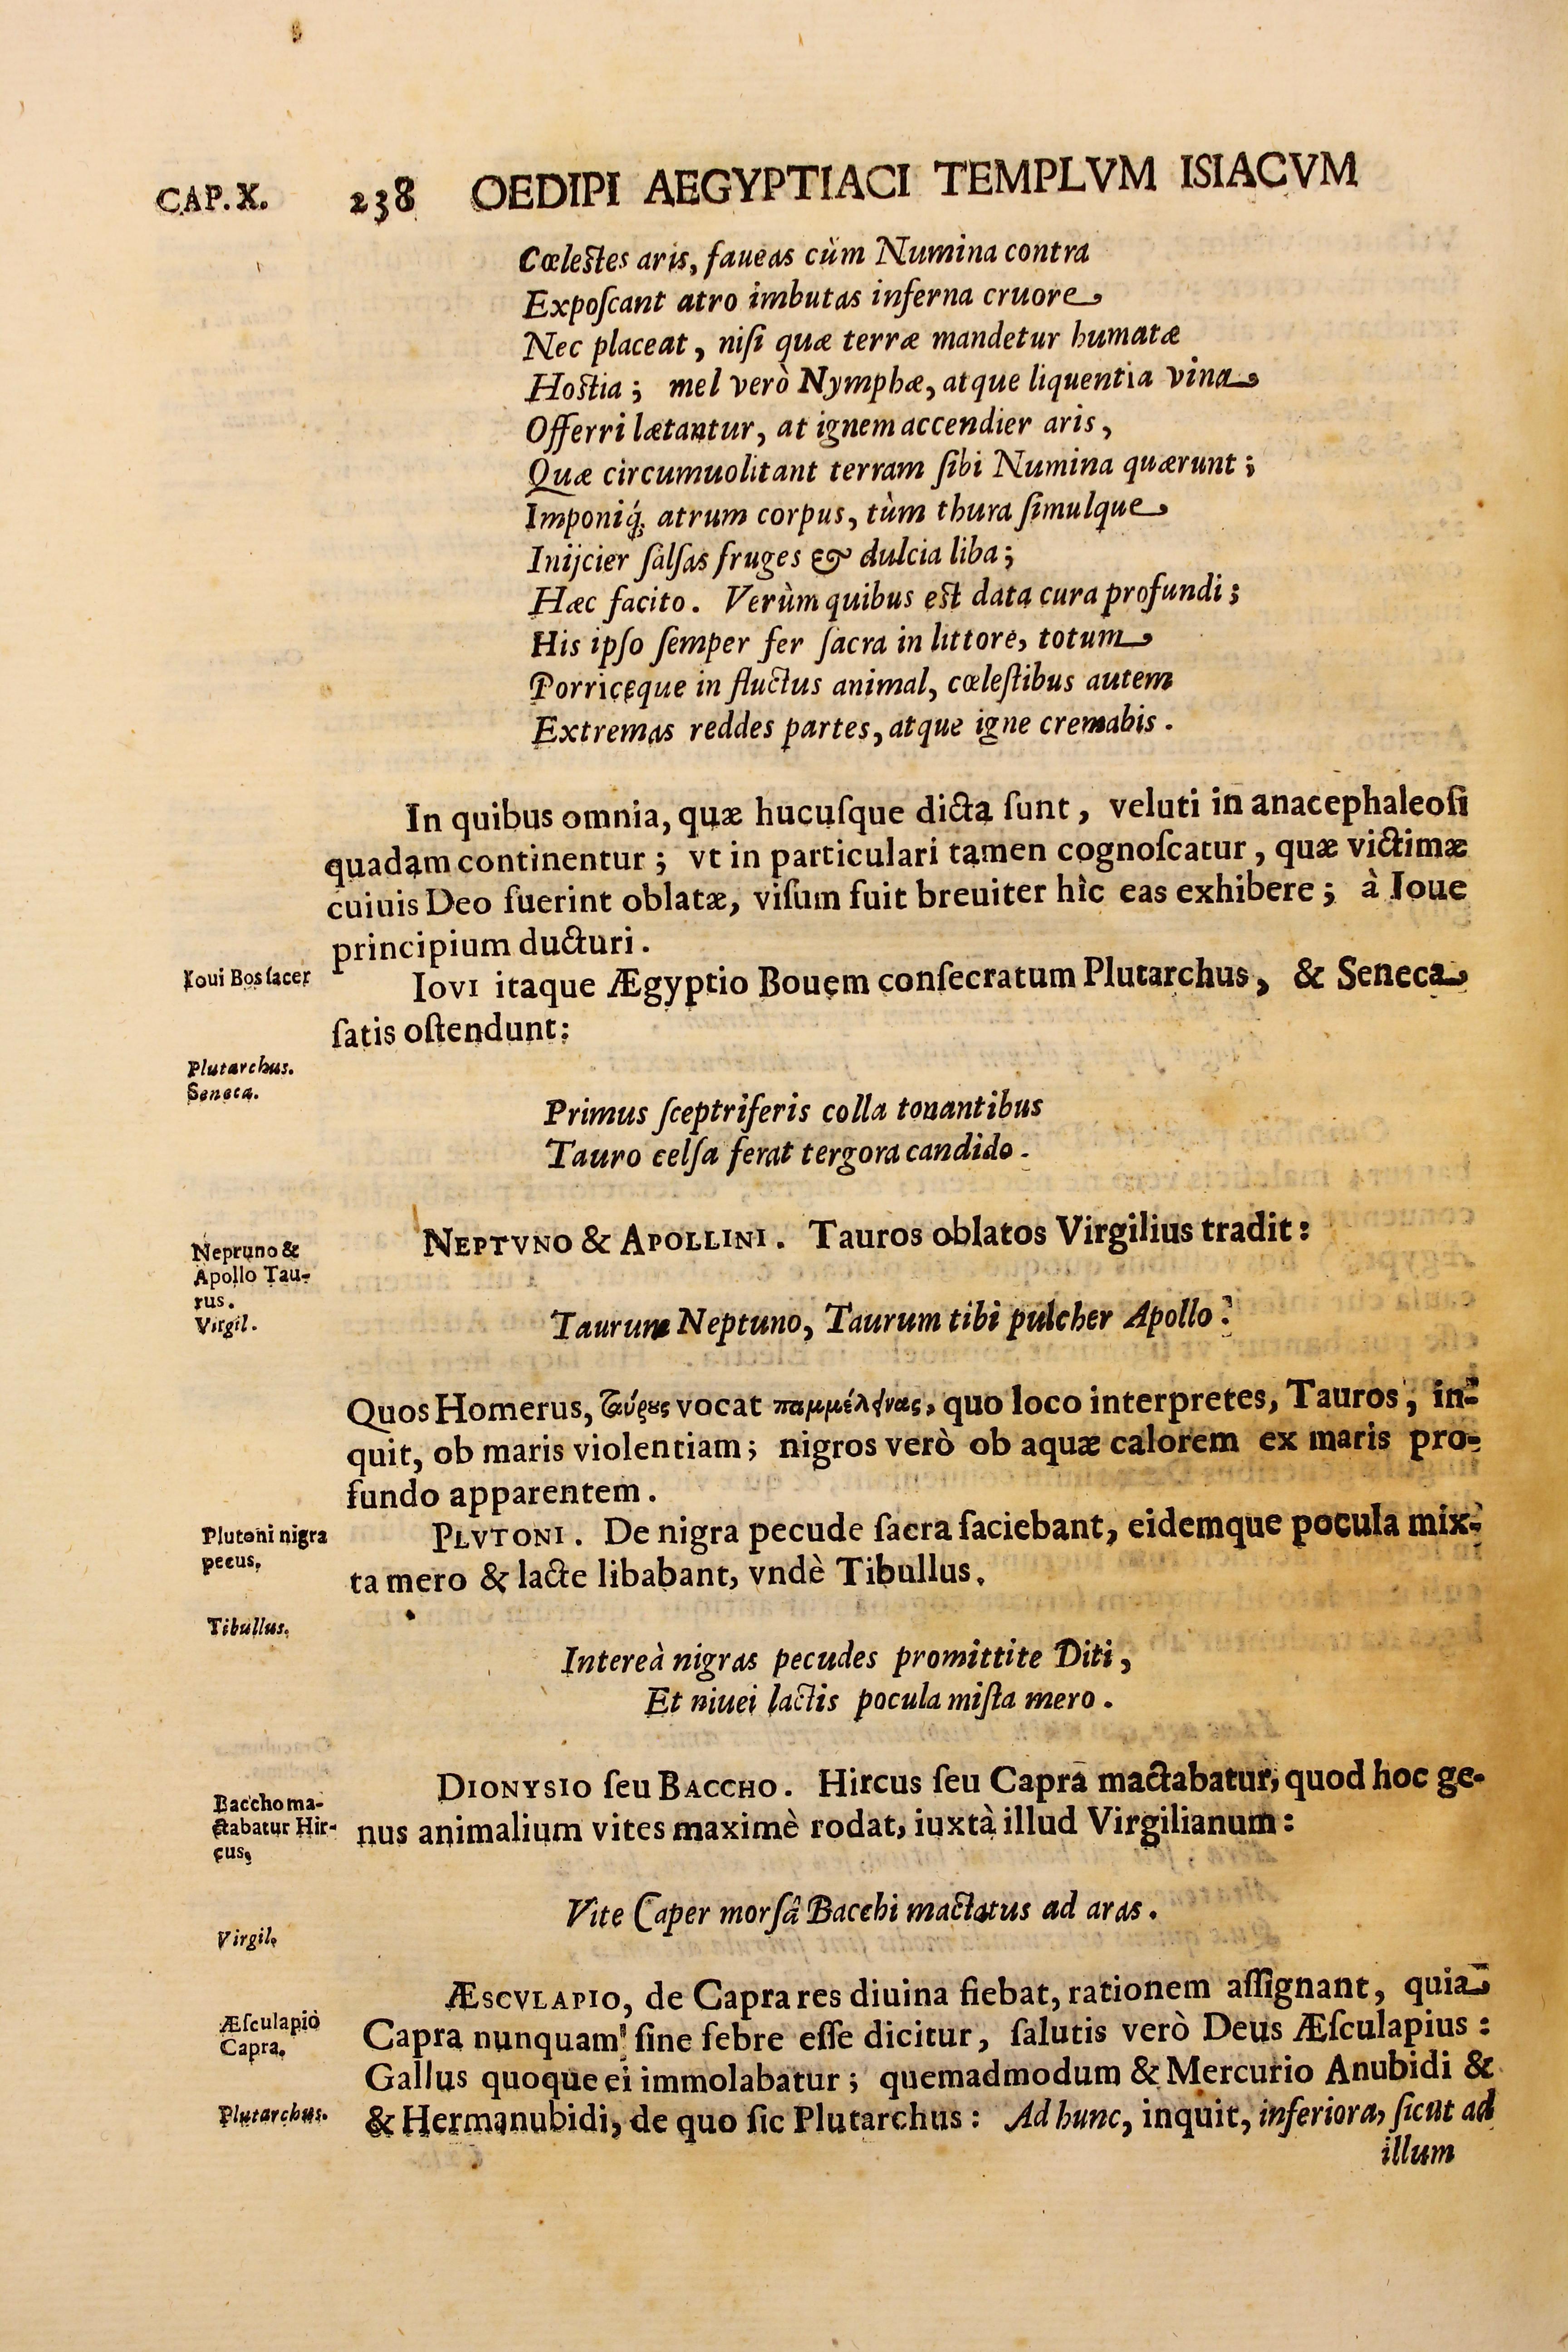 CAP. X. 238 OEDIPI AEGYPTIACI TEMPLVM ISIACVM
Cœlestes aris, faueas cùm Numina contra
Expoſcant atro imbutas inferna cruore
Nec placeat, niſi quæ terræ mandetur humatæ
Hostia; mel verò Nymphæ, atque liquentia vina
Offerri lætantur, at ignem accendier aris,
Quæ circumuolitant terram ſibi Numina quærunt;
Imponiq́; atrum corpus, tùm thura ſimulque
Inijcier ſalſas fruges & dulcia liba;
Hæc facito. Verùm quibus est data cura profundi;
His ipſo ſemper fer ſacra in littore, totum
Porriceque in fluctus animal, cœleſtibus autem
Extremas reddes partes, atque igne cremabis.
In quibus omnia, quæ hucuſque dicta ſunt, veluti in anacephaleoſi
quadam continentur; vt in particulari tamen cognoſcatur, quæ victimæ
cuiuis Deo fuerint oblatæ, viſum fuit breuiter hìc eas exhibere; à Ioue
principium ducturi.
Ioui Bos ſacer
IOVI itaque Ægyptio Bouem conſecratum Plutarchus, & Seneca
ſatis oſtendunt:
Plutarchus.
Seneca.
Primus ſceptriferis colla tonantibus
Tauro celſa ferat tergora candido.
Nepruno &
Apollo Tau-
rus.
Virgil.
NEPTVNO & APOLLINI. Tauros oblatos Virgilius tradit:
Taurum Neptuno, Taurum tibi pulcher Apollo:
Quos Homerus, ταύρους vocat παμμέλανας, quo loco interpretes, Tauros, in-
quit, ob maris violentiam; nigros verò ob aquæ calorem ex maris pro-
fundo apparentem.
Plutoni nigra
pecus.
PLVTONI. De nigra pecude ſacra faciebant, eidemque pocula mix-
ta mero & lacte libabant, vndè Tibullus.
Tibullus.
Intereà nigras pecudes promittite Diti,
Et niuei lactis pocula miſta mero.
Baccho ma-
ctabatur Hir-
cus.
DIONYSIO ſeu BACCHO. Hircus ſeu Capra mactabatur, quod hoc ge-
nus animalium vites maximè rodat, iuxtà illud Virgilianum:
Vite Caper morſâ Bacchi mactatus ad aras.
Virgil.
Æſculapio
Capra.
ÆSCVLAPIO, de Capra res diuina fiebat, rationem aſſignant, quia
Capra nunquam ſine febre eſſe dicitur, ſalutis verò Deus Æſculapius:
Gallus quoque ei immolabatur; quemadmodum & Mercurio Anubidi &
Plutarchus.
& Hermanubidi, de quo ſic Plutarchus: Ad hunc, inquit, inferiora, ſicut ad
illum